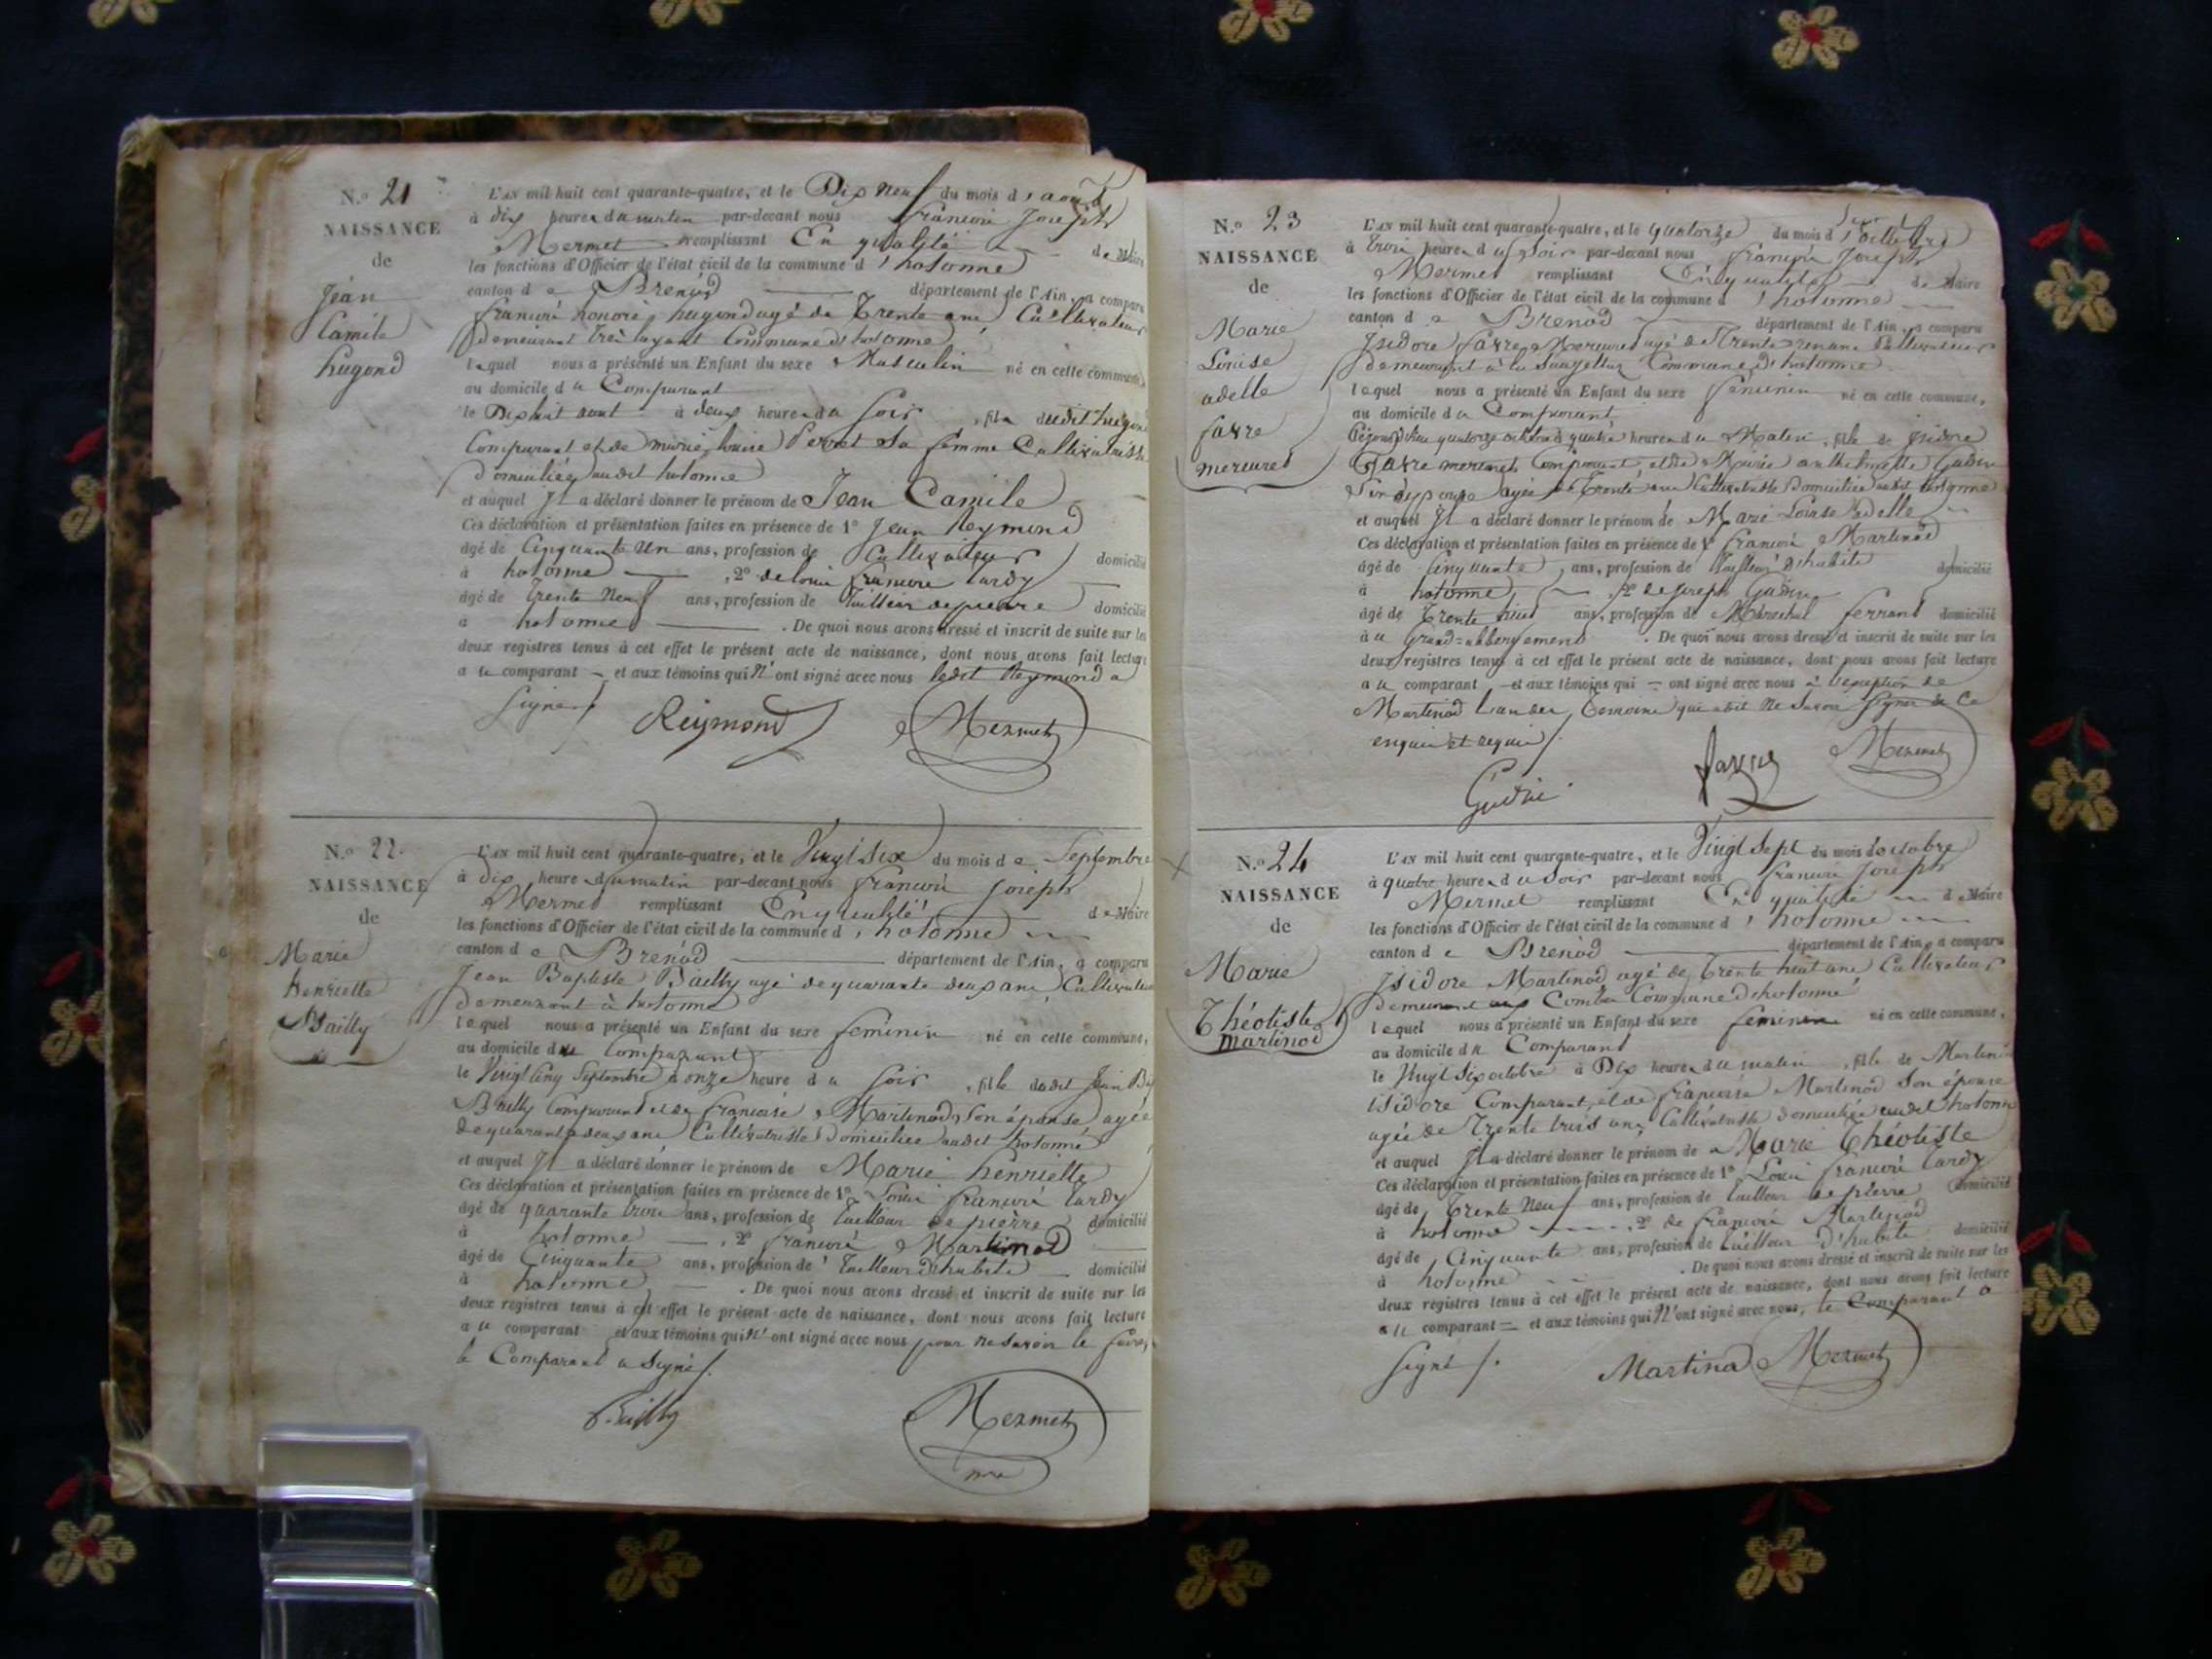 N.o 21
NAISSANCE
de
Jean
Camile
hugond
L'AN mil huit cent quarante-quatre, et le Dix neuf du mois d'aout
à dix heures du matin par-devant nous francois Joseph
Mermet remplissant En qualité de Maire
les fonctions d'Officier de l'état civil de la commune d'hotonne
canton de Brenod département de l'Ain, a comparu
francois honoré hugond agé de Trente ans Cultivateur
demeurant Commune d'hotonne
lequel nous a présenté un Enfant du sexe Masculin né en cette commune
au domicile du Comparant
le Dixhuit aout à deux heures du soir, fils dudit hugond
Comparant et de marie louise Perret sa femme Cultivatrice
domiciliés audit hotonne
et auquel Il a déclaré donner le prénom de Jean Camile
Ces déclaration et présentation faites en présence de 1º Jean Reymond
âgé de Cinquante Un ans, profession de Cultivateur domicilié
à hotonne, 2º de louis francois tardy
âgé de Trente Neuf ans, profession de Tailleur de pierre domicilié
à hotonne. De quoi nous avons dressé et inscrit de suite sur les
deux registres tenus à cet effet le présent acte de naissance, dont nous avons fait lecture
au comparant et aux témoins qui N'ont signé avec nous ledit Reymond a
signé
Reymond Mermet
N.o 22
NAISSANCE
de
Marie
henriette
Bailly
L'AN mil huit cent quarante-quatre, et le Vingt six du mois de Septembre
à dix heures du matin par-devant nous francois joseph
Mermet remplissant En qualité de Maire
les fonctions d'Officier de l'état civil de la commune d'hotonne
canton de Brenod département de l'Ain, a comparu
Jean Baptiste Bailly agé de quarante deux ans Cultivateur
demeurant à hotonne
lequel nous a présenté un Enfant du sexe feminin né en cette commune,
au domicile du Comparant
le Vingt Cinq Septembre à onze heure du soir, fille dudit Jean Bte
Bailly Comparant et de francoise Martinod son épouse agée
de quarante deux ans Cultivatrice domiciliée audit hotonne
et auquel Il a déclaré donner le prénom de Marie henriette
Ces déclaration et présentation faites en présence de 1º Louis francois tardy
âgé de quarante trois ans, profession de tailleur de pierre domicilié
à hotonne, 2º francois Martinod
âgé de Cinquante ans, profession de Tailleur d'habits domicilié
à hotonne. De quoi nous avons dressé et inscrit de suite sur les
deux registres tenus à cet effet le présent acte de naissance, dont nous avons fait lecture
au comparant et aux témoins qui N'ont signé avec nous pour ne savoir le faire,
le Comparant a signé
Bailly Mermet
N.o 23
NAISSANCE
de
Marie
Louise
adelle
favre
mercured
L'AN mil huit cent quarante-quatre, et le quatorze du mois d'octobre
à trois heures du soir par-devant nous francois Joseph
Mermet remplissant En qualité de Maire
les fonctions d'Officier de l'état civil de la commune d'hotonne
canton de Brenod département de l'Ain, a comparu
Isidore favre agé de Trente ans Cultivateur
demeurant à la Commune d'hotonne
lequel nous a présenté un Enfant du sexe feminin né en cette commune,
au domicile du Comparant
quatorze octobre à quatre heures du Matin, fille de Isidore
favre Comparant, et de Marie anthelmette
son épouse agée de Trente ans Cultivatrice domiciliée audit hotonne
et auquel Il a déclaré donner le prénom de Marie Louise adelle
Ces déclaration et présentation faites en présence de 1º francois Martinod
âgé de Cinquante ans, profession de tailleur d'habits domicilié
à hotonne, 2º de joseph Gudin
âgé de Trente huit ans, profession de Maréchal ferrant domicilié
au Grand-abbergement. De quoi nous avons dressé et inscrit de suite sur les
deux registres tenus à cet effet le présent acte de naissance, dont nous avons fait lecture
au comparant et aux témoins qui ont signé avec nous à l'exception de
Martinod l'un des Temoins qui a dit Ne Savoir Signer de Ce
enquis et requis
favre Mermet
N.o 24
NAISSANCE
de
Marie
Théotiste
martinod
L'AN mil huit cent quarante-quatre, et le Vingt Sept du mois d'octobre
à quatre heures du soir par-devant nous francois joseph
Mermet remplissant En qualité de Maire
les fonctions d'Officier de l'état civil de la commune d'hotonne
canton de Brenod département de l'Ain, a comparu
Isidore Martinod agé de Trente huit ans Cultivateur
demeurant Commune d'hotonne
lequel nous a présenté un Enfant du sexe feminin né en cette commune,
au domicile du Comparant
le Vingt Six octobre à Dix heures du matin, fille de Martinod
isidore Comparant, et de francoise Martinod Son épouse
agée de Trente trois ans, Cultivatrice domiciliée audit hotonne
et auquel Il a déclaré donner le prénom de Marie Théotiste
Ces déclaration et présentation faites en présence de 1º Louis francois tardy
âgé de Trente Neuf ans, profession de tailleur de pierre domicilié
à hotonne, 2º de francois Martinod
âgé de Cinquante ans, profession de tailleur d'habits domicilié
à hotonne. De quoi nous avons dressé et inscrit de suite sur les
deux registres tenus à cet effet le présent acte de naissance, dont nous avons fait lecture
au comparant et aux témoins qui N'ont signé avec nous, le Comparant a
signé
Martinod Mermet